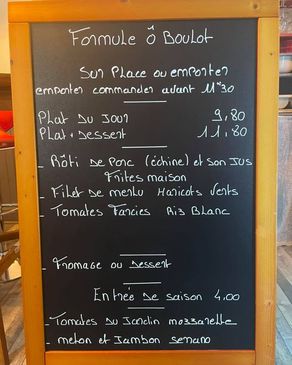 Formule Ô Boulot
Sur Place ou emporter
emporter commander avant 11H30
Plat Du Jour 9,80
Plat + Dessert 11,80
- Rôti De Porc (échine) et son Jus
Frites maison
- Filet De merlu Haricots Verts
- Tomates Farcies Riz Blanc
- Fromage ou Dessert
Entrée De saison 4,00
- Tomates Du Jardin mozzarelle
- melon et Jambon serrano